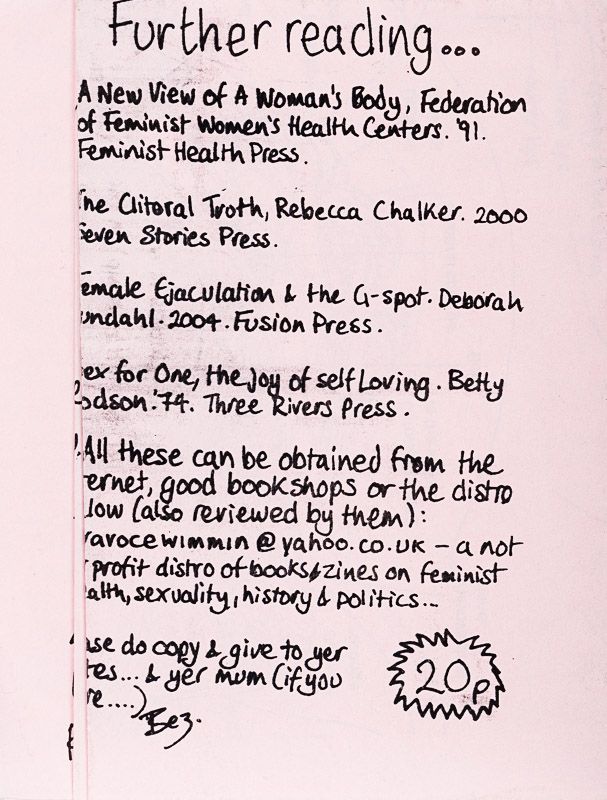 Further reading...
A New View of A Woman's Body, Federation
of Feminist Women's Health Centers. '91.
Feminist Health Press.
The Clitoral Truth, Rebecca Chalker. 2000
Seven Stories Press.
emale Ejaculation & the G-spot. Deborah
undahl. 2004. Fusion Press.
ex for One, the Joy of self Loving. Betty
odson. '74. Three Rivers Press.
All these can be obtained from the
ernet, good bookshops or the distro
low (also reviewed by them):
avocewimmin@yahoo.co.uk – a not
profit distro of books & zines on feminist
alth, sexuality, history & politics...
ase do copy & give to yer
tes... & yer mum (if you
re....)
Bez.
20p